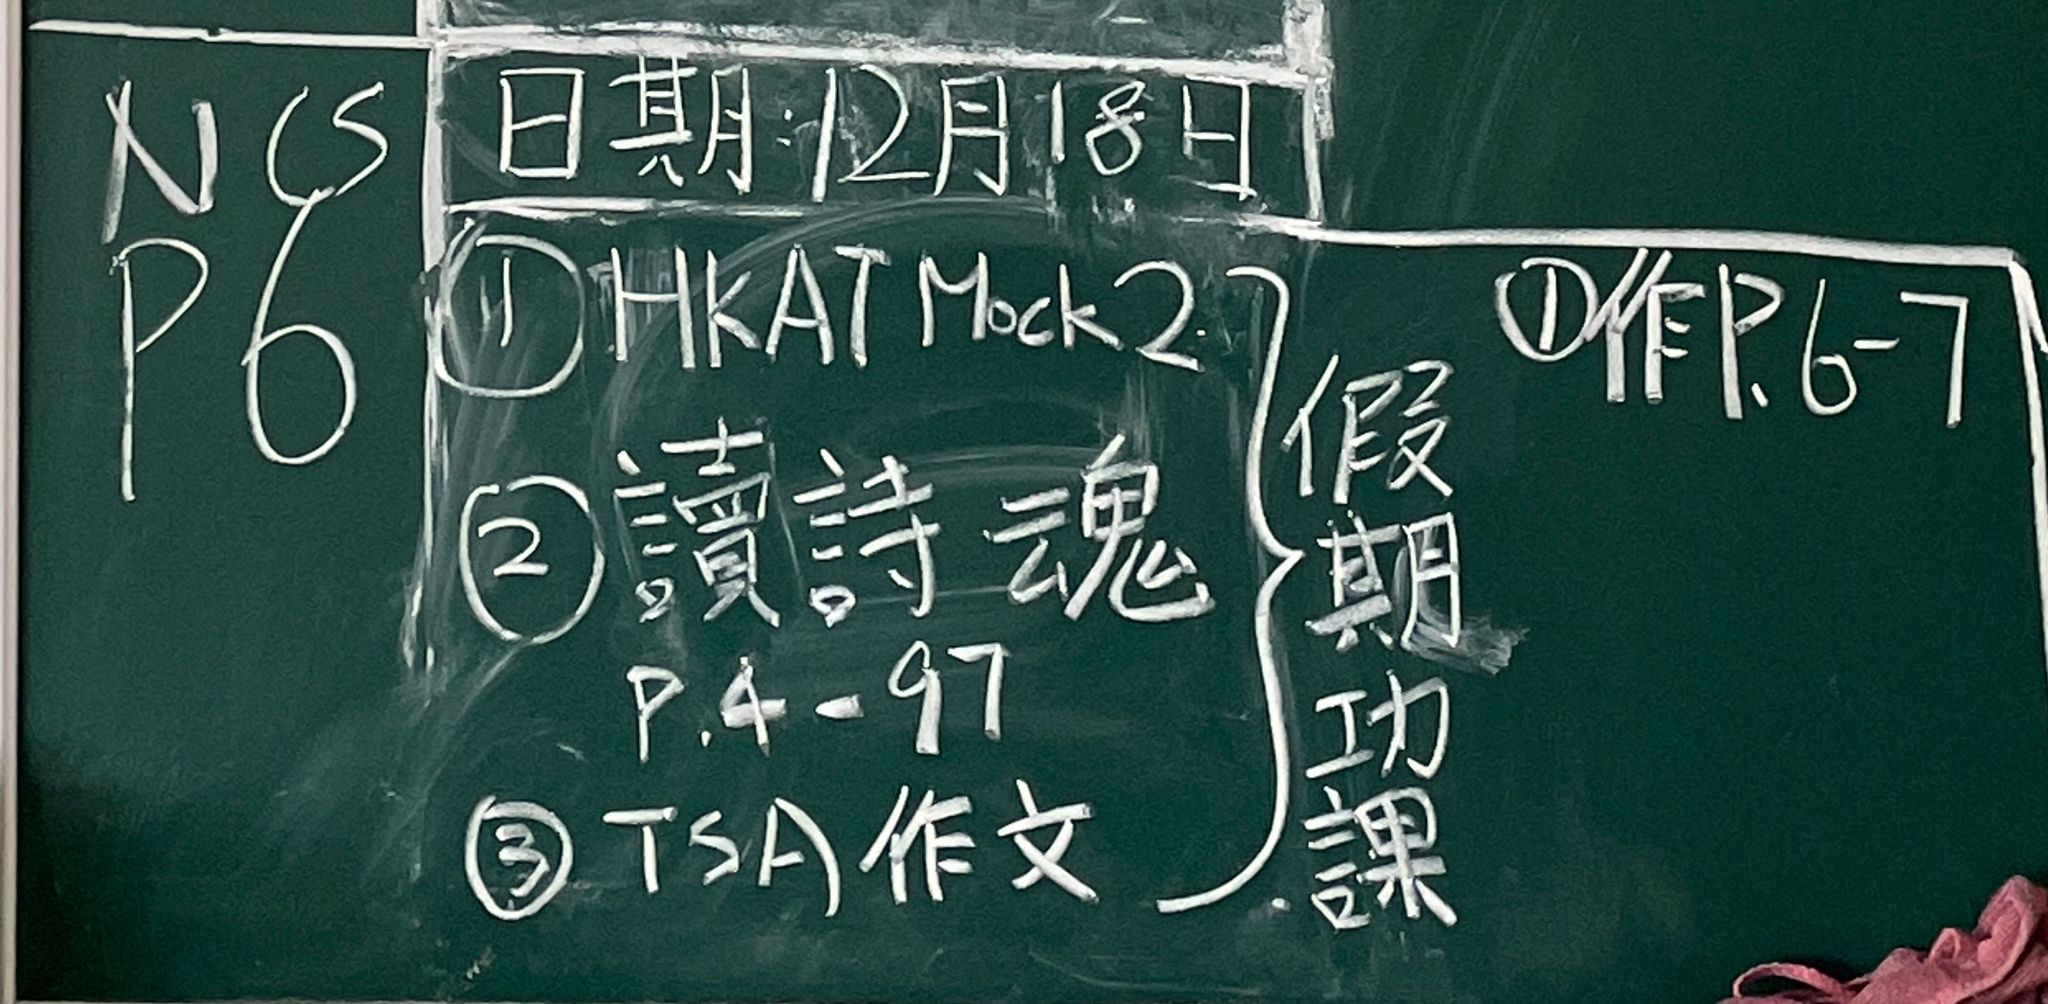 NCS
P6
日期:12月18日
① HKAT Mock 2
② 讀詩魂
P.4-97
③ TSA 作文
假期功課
① 作 P.6-7